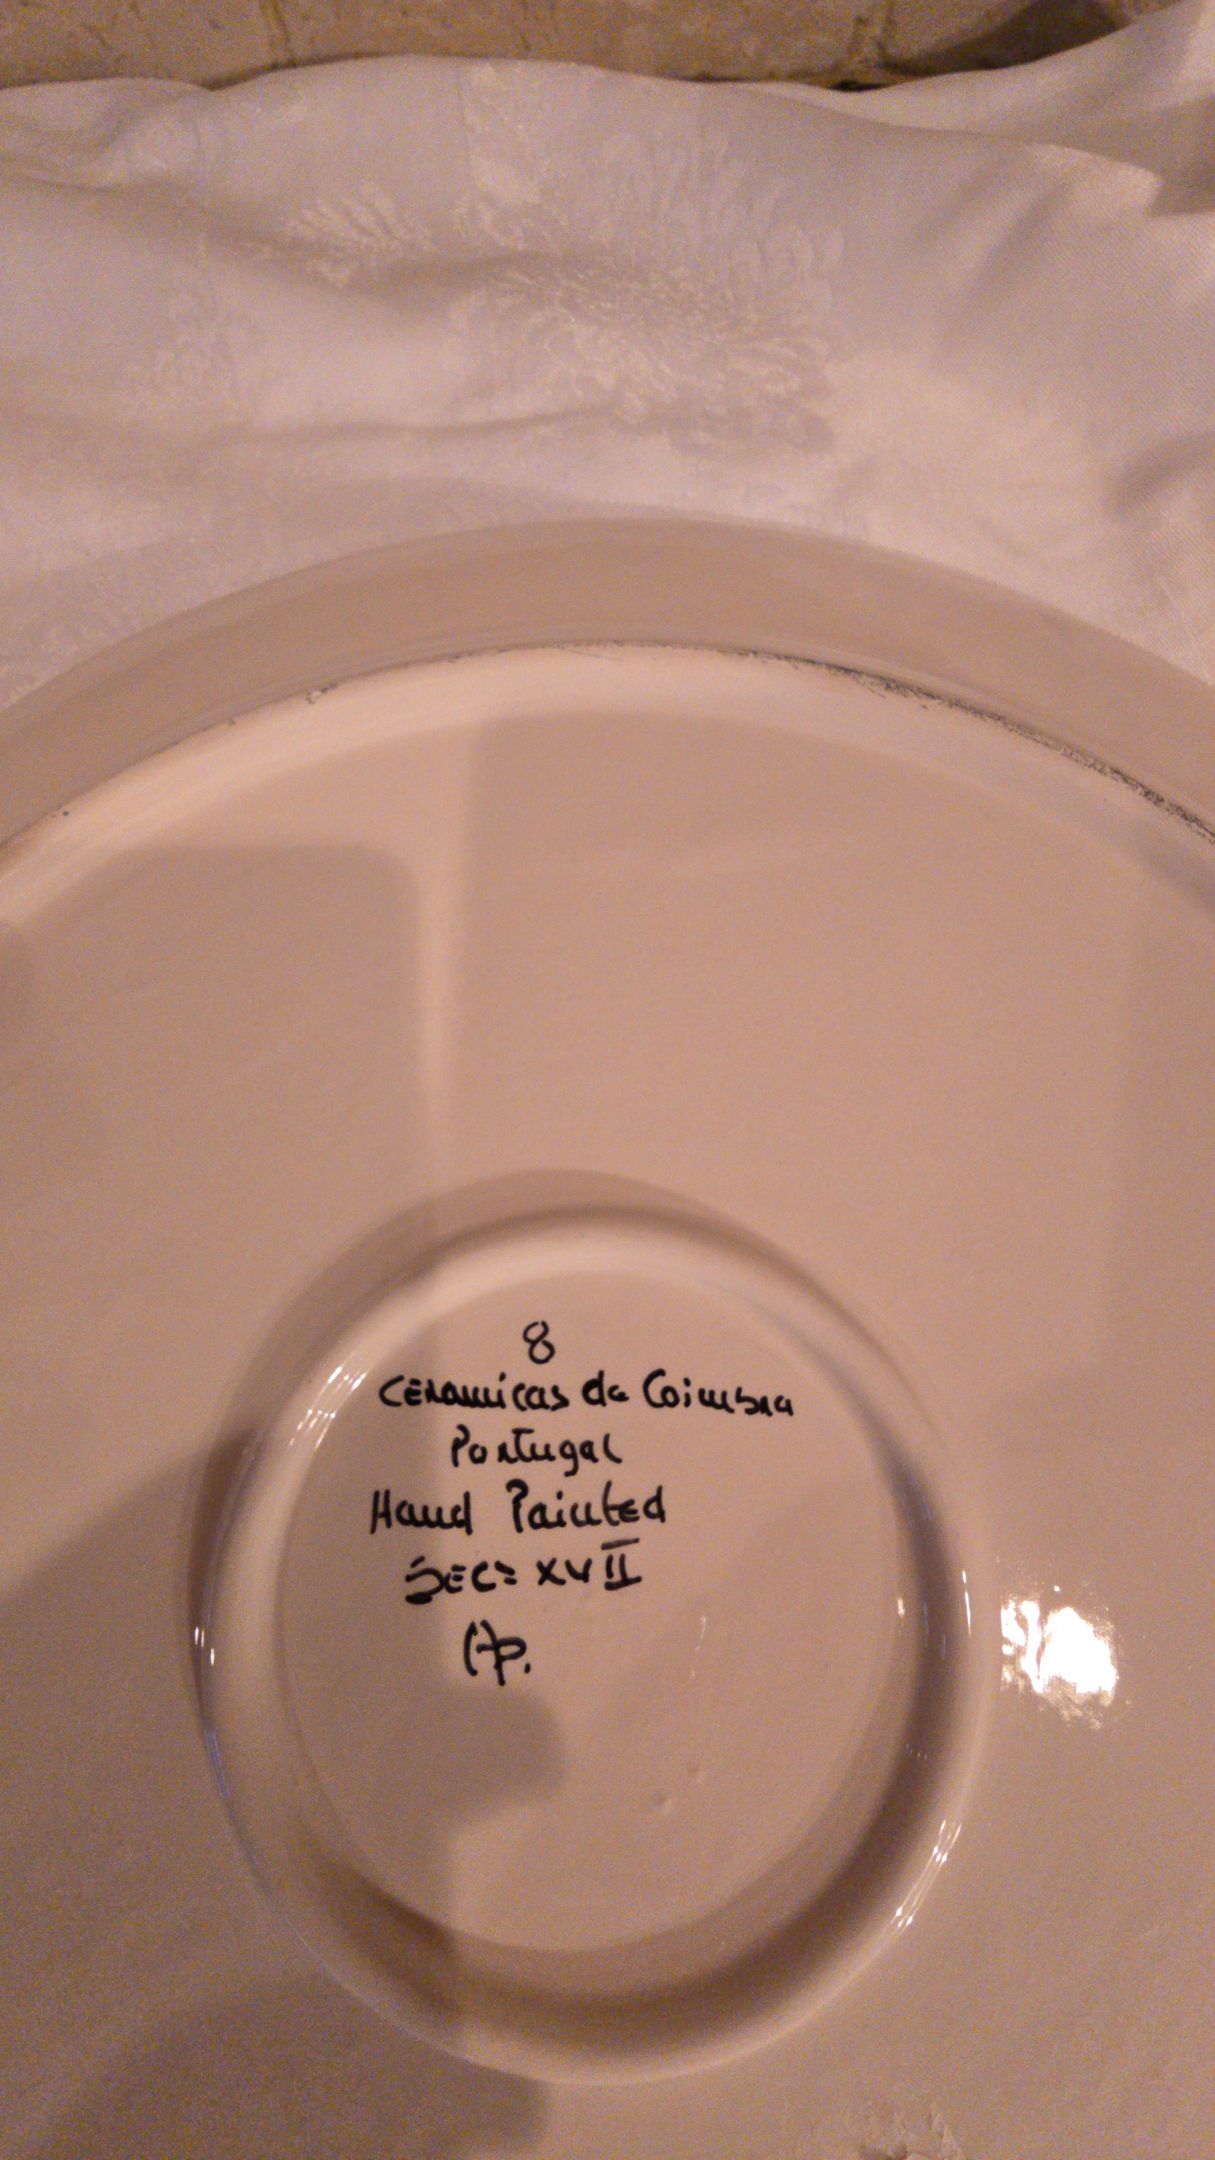 8
CERAMICAS de Coimbra
Portugal
Hand Painted
SEC= XVII